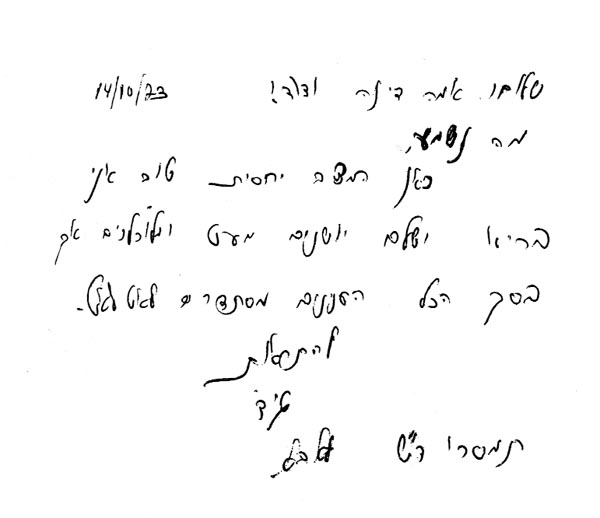 שלום אמא דינה ודוד! 14/10/73
מה נשמע,
כאן המצב יחסית טוב אני
בריא ושלם ישנים מעט ואוכלים אך
בסך הכל הענינים מסתדרים לאט לאט.
להתראות
תמסרו ד"ש